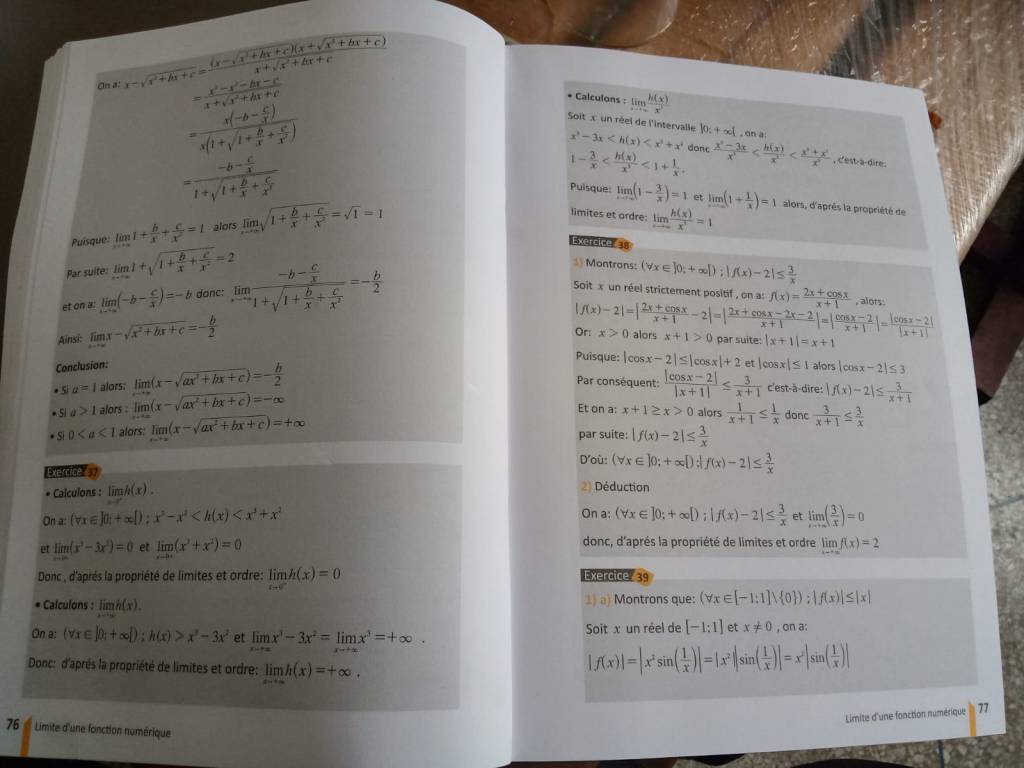 On a: x - √(x² + bx + c) = (x - √(x² + bx + c))(x + √(x² + bx + c)) / (x + √(x² + bx + c))
= (x² - x² - bx - c) / (x + √(x² + bx + c))
= x(-b - c/x) / x(1 + √(1 + b/x + c/x²))
= (-b - c/x) / (1 + √(1 + b/x + c/x²))
Puisque: lim_{x→+∞} 1 + b/x + c/x² = 1 alors lim_{x→+∞} √(1 + b/x + c/x²) = √1 = 1
Par suite: lim_{x→+∞} 1 + √(1 + b/x + c/x²) = 2
et on a: lim_{x→+∞} (-b - c/x) = -b donc: lim_{x→+∞} (-b - c/x) / (1 + √(1 + b/x + c/x²)) = -b/2
Ainsi: lim_{x→+∞} x - √(x² + bx + c) = -b/2
Conclusion:
• Si a = 1 alors: lim_{x→+∞} (x - √(ax² + bx + c)) = -b/2
• Si a > 1 alors : lim_{x→+∞} (x - √(ax² + bx + c)) = -∞
• Si 0 < a < 1 alors: lim_{x→+∞} (x - √(ax² + bx + c)) = +∞
Exercice 37
• Calculons : lim_{x→0⁺} h(x) .
On a: (∀x ∈ ]0; +∞[) ; x³ - x² < h(x) < x³ + x²
et lim (x³ - 3x²) = 0 et lim (x³ + x²) = 0
Donc , d'aprés la propriété de limites et ordre: lim_{x→0⁺} h(x) = 0
• Calculons : lim_{x→+∞} h(x).
On a: (∀x ∈ ]0; +∞[) ; h(x) > x³ - 3x² et lim_{x→+∞} x³ - 3x² = lim_{x→+∞} x³ = +∞ .
Donc: d'aprés la propriété de limites et ordre: lim_{x→+∞} h(x) = +∞ .
76 Limite d'une fonction numérique
• Calculons : lim_{x→+∞} h(x)/x³
Soit x un réel de l'intervalle ]0; +∞[ , on a:
x³ - 3x < h(x) < x³ + x² donc (x³ - 3x)/x³ < h(x)/x³ < (x³ + x²)/x³ , c'est-à-dire:
1 - 3/x < h(x)/x³ < 1 + 1/x .
Puisque: lim_{x→+∞} (1 - 3/x) = 1 et lim_{x→+∞} (1 + 1/x) = 1 alors, d'aprés la propriété de
limites et ordre: lim_{x→+∞} h(x)/x³ = 1
Exercice 38
1) Montrons: (∀x ∈ ]0; +∞[) ; |f(x) - 2| ≤ 3/x
Soit x un réel strictement positif , on a: f(x) = (2x + cosx)/(x + 1) , alors:
|f(x) - 2| = |(2x + cosx)/(x + 1) - 2| = |(2x + cosx - 2x - 2)/(x + 1)| = |(cosx - 2)/(x + 1)| = |cosx - 2|/|x + 1|
Or: x > 0 alors x + 1 > 0 par suite: |x + 1| = x + 1
Puisque: |cosx - 2| ≤ |cosx| + 2 et |cosx| ≤ 1 alors |cosx - 2| ≤ 3
Par conséquent: |cosx - 2|/|x + 1| ≤ 3/(x + 1) c'est-à-dire: |f(x) - 2| ≤ 3/(x + 1)
Et on a: x + 1 ≥ x > 0 alors 1/(x + 1) ≤ 1/x donc 3/(x + 1) ≤ 3/x
par suite: |f(x) - 2| ≤ 3/x
D'où: (∀x ∈ ]0; +∞[) ;|f(x) - 2| ≤ 3/x
2) Déduction
On a: (∀x ∈ ]0; +∞[) ; |f(x) - 2| ≤ 3/x et lim_{x→+∞} (3/x) = 0
donc, d'aprés la propriété de limites et ordre lim_{x→+∞} f(x) = 2
Exercice 39
1) a) Montrons que: (∀x ∈ [-1; 1] \ {0}) ; |f(x)| ≤ |x|
Soit x un réel de [-1; 1] et x ≠ 0 , on a:
|f(x)| = |x² sin(1/x)| = |x²||sin(1/x)| = x²|sin(1/x)|
Limite d'une fonction numérique 77